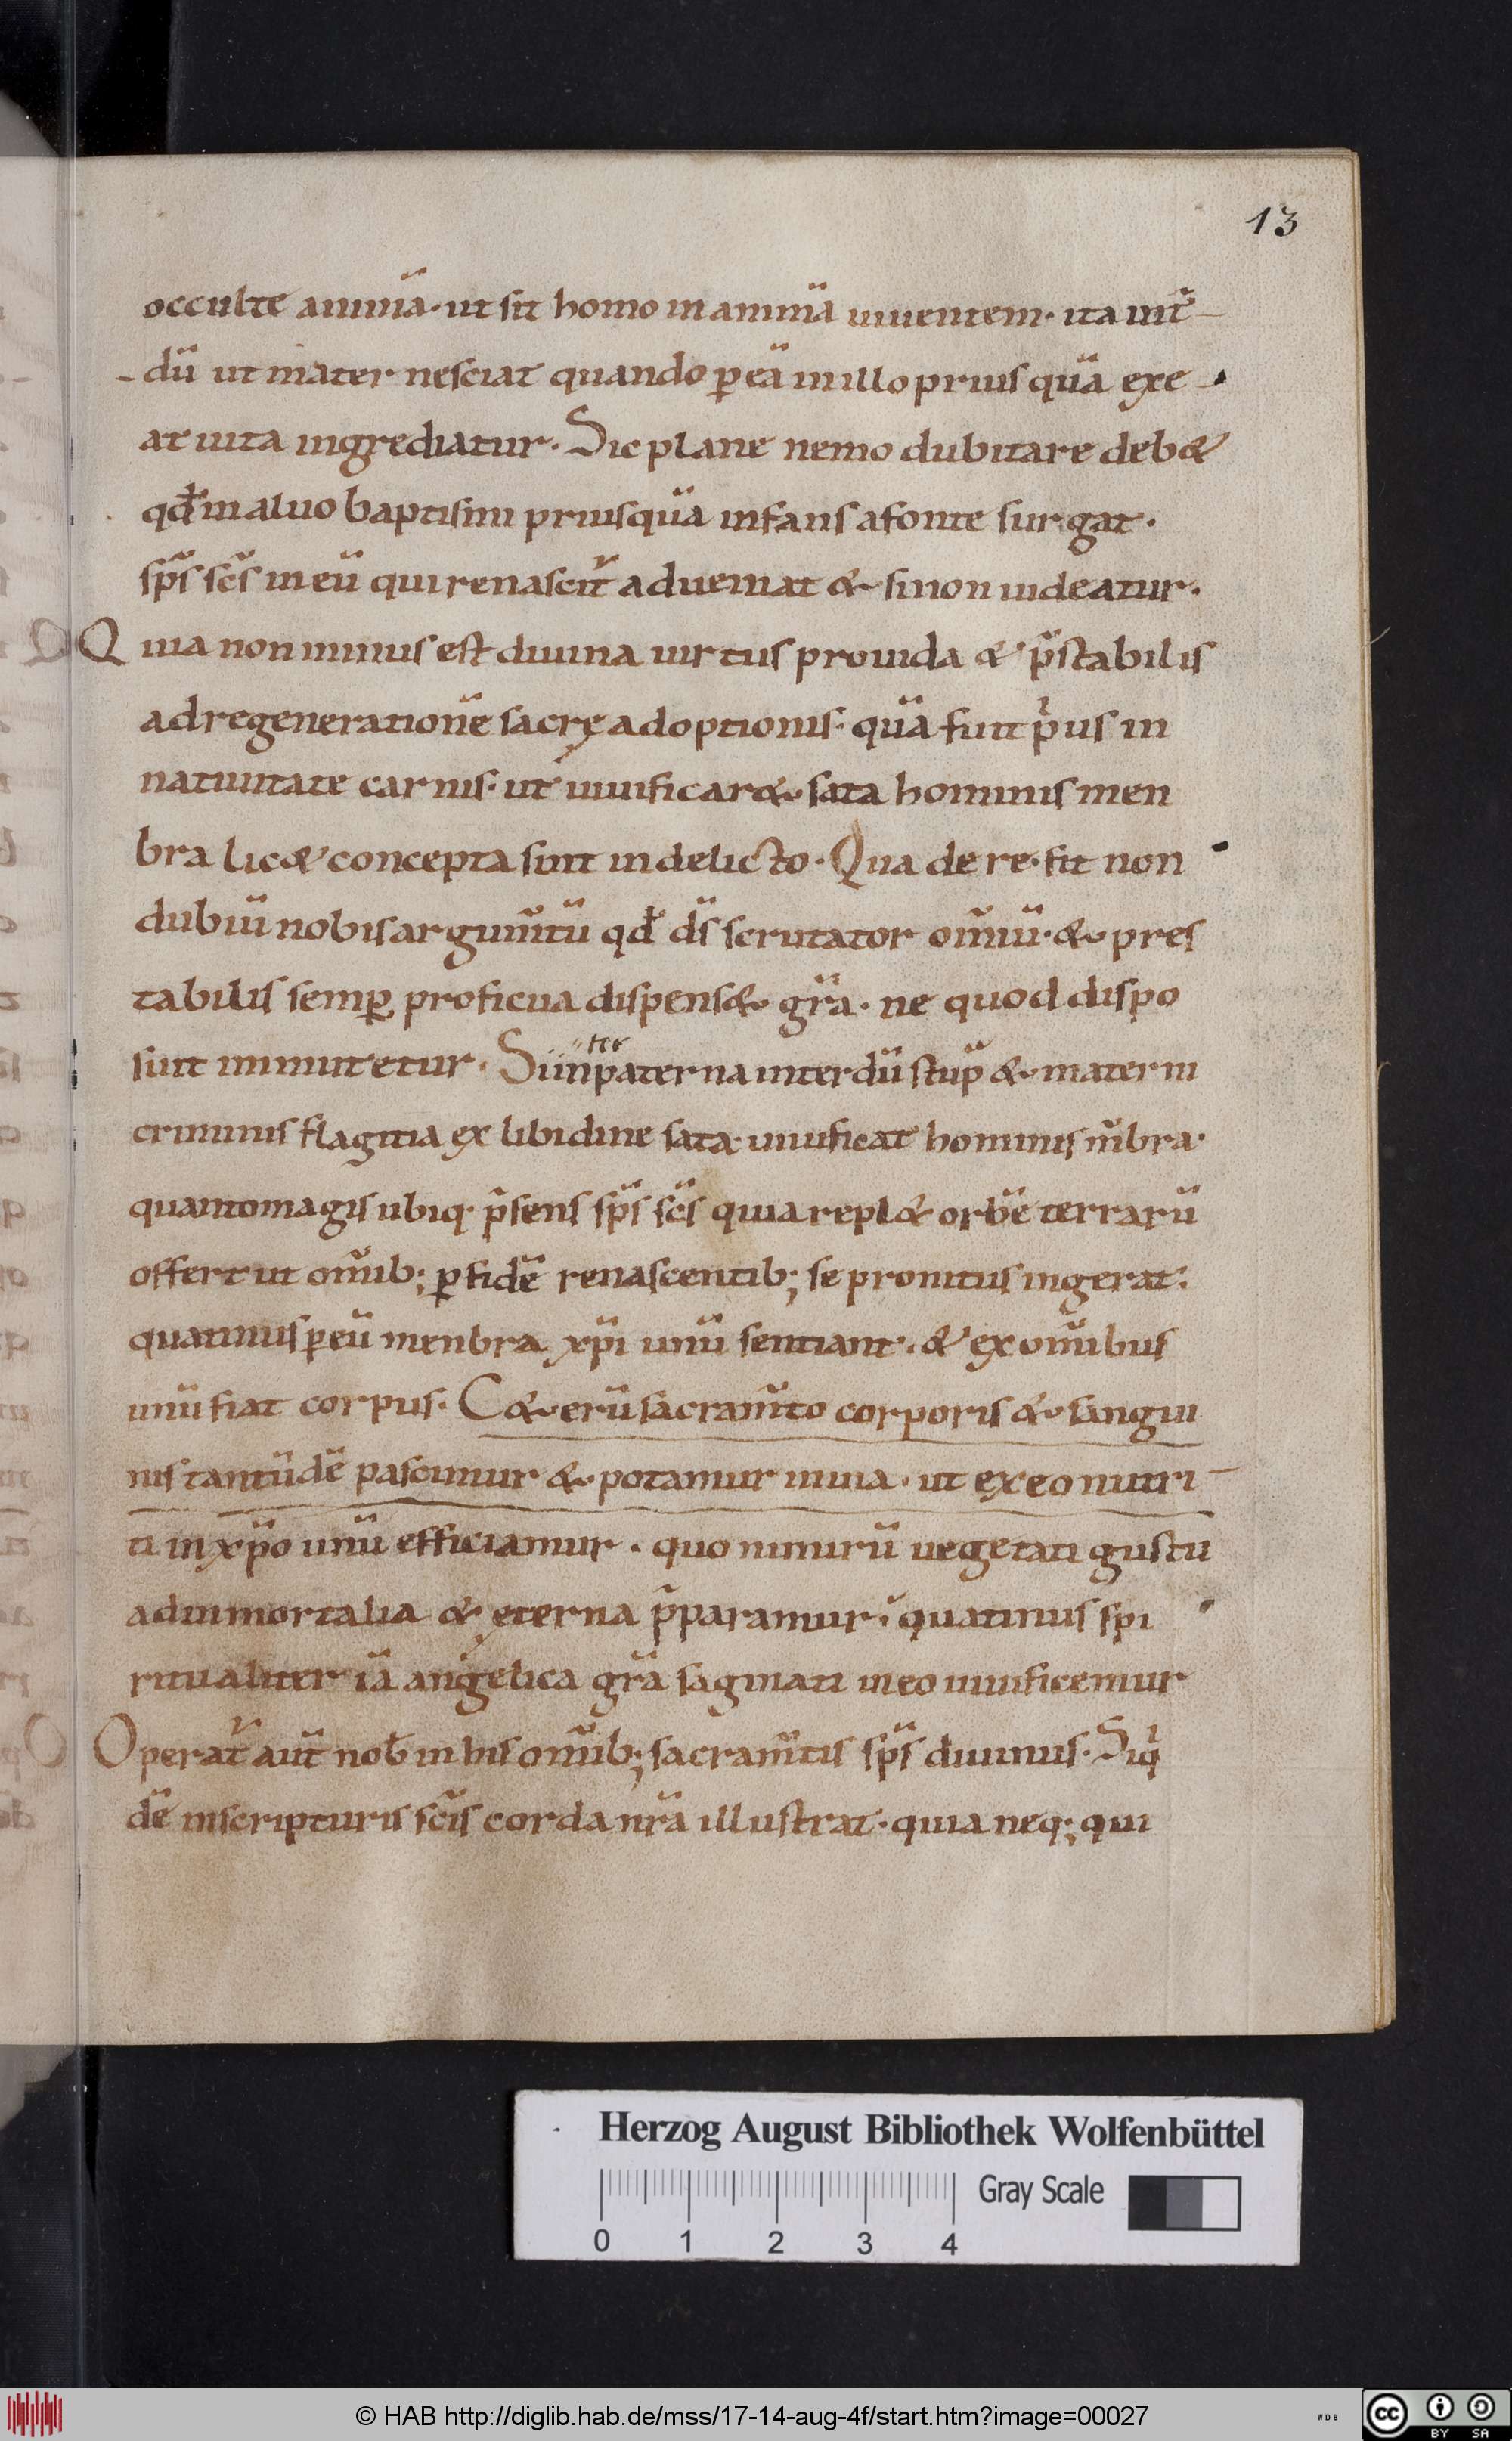 13
occulte animā· ut sit homo in animā uiuentem· ita int̄
dū ut mater nesciat quando ꝑ eā in illo prius quā exe
at uita ingrediatur· Sic plane nemo dubitare deb&
qđ in aluo baptismi priusquā infans a fonte surgat·
sp̄s sc̄s in eū qui renascit̄ adueniat & si non uideatur·
Quia non minus est diuina uirtus prouida & p̄stabilis
ad regenerationē sacrę adoptionis· quā fuit pͥus in
natiuitate carnis· ut uiuificar& sata hominis men
bra lic& concepta sint in delicto· Qua de re· fit non
dubiū nobis argum̄tū qđ ds̄ scrutator om̄iū· & pres
tabilis semꝑ proficua dispens& gr̄a· ne quod dispo
suit inmutetur· Si in ter paterna interdū stup̄ & materni
criminis flagitia ex libidine sata uiuificat hominis m̄bra·
quanto magis ubiq· p̄sens sp̄s sc̄s quia repl& orbē terrarū
offert ut om̄ib; ꝑ fidē renascentib; se pronitus ingerat:
quatinus ꝑ eū menbra xp̄i unū sentiant· & ex om̄ibus
unū fiat corpus· C&erū sacram̄to corporis & sangui
nis tantūdē pascimur & potamur in uia· ut ex eo nutri
ti in xp̄o unū efficiamur· quo nimirū uegetati gustu
ad inmortalia & ęterna p̄paramur: quatinus spi
ritualiter iā angelica gr̄a saginati in eo uiuificemur
Operat̄ aut̄ nob̄ in his om̄ib; sacram̄tis sp̄s diuinus· Siqͥ
dē in scripturis sc̄is corda nr̄a illustrat· quia neq; qui
Herzog August Bibliothek Wolfenbüttel
Gray Scale
0 1 2 3 4
© HAB http://diglib.hab.de/mss/17-14-aug-4f/start.htm?image=00027
WDB
cc BY SA